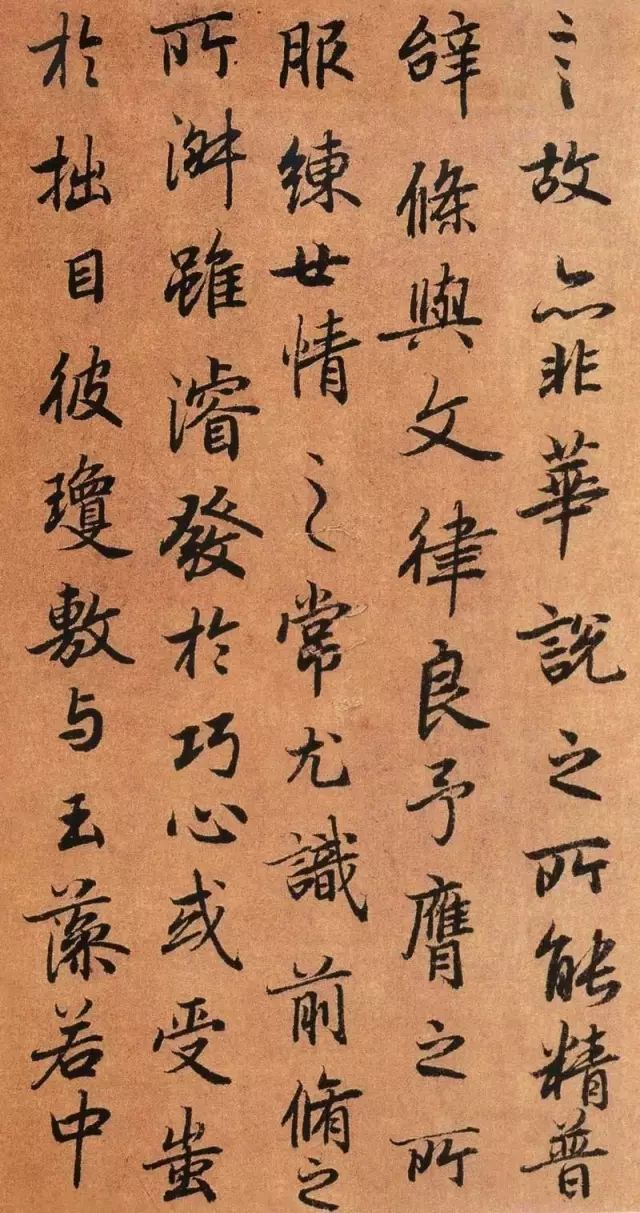 之故亦非華說之所能精普
辝條與文律良予膺之所
服練世情之常尤識前脩之
所淋雖濬發於巧心或受蚩
於拙目彼瓊敷与玉藻若中